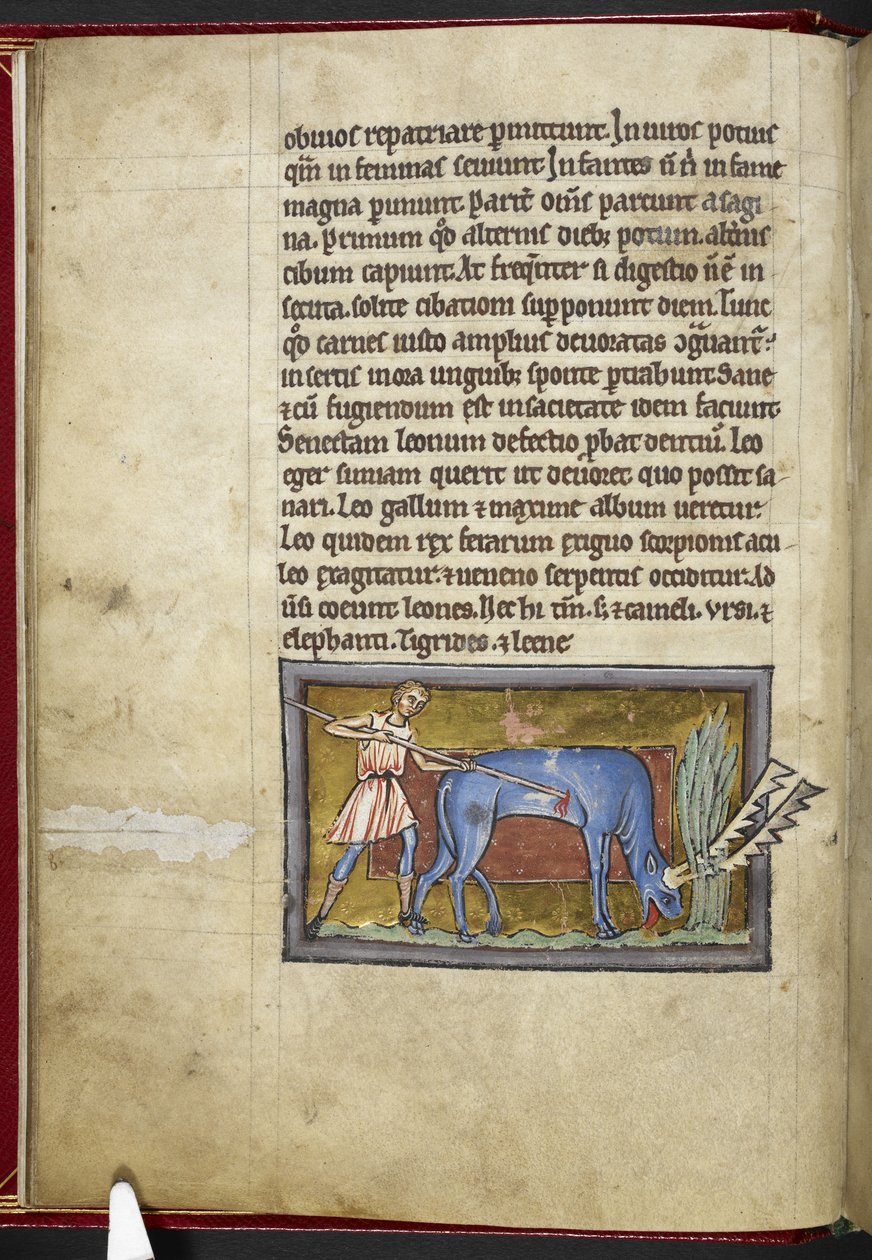 obuios repatriare ꝑmittunt. In uiros potius
qͣm in feminas seuiunt. Infantes ñ ṅ in fame
magna ꝑimunt. Parit̄ oīns parcunt a sagi
na. Primum qͦd alternis dieb; potum. alt̾nis
cibum capiunt. At freq̄nter si digestio ñ ē in
secuta. solite cibationi suꝑponunt diem. Tunc
qͦd carnes iusto amplius deuoratas ↄgͣuant᷑.
insertis in ora unguib; sponte ꝑtrahunt. Sane
⁊ cū fugiendum est in sacietate idem faciunt.
Senectam leonum defectio ꝓbat dentiū. Leo
eger simiam querit ut deuoret. quo possit sa-
nari. Leo gallum ⁊ maxime album ueretur.
Leo quidem rex ferarum exiguo scorpionis acu-
leo exagitatur. ⁊ ueneno serpentis occiditur. Ad
ūsi coeunt leones. Nec hi tm̄. s; ⁊ cameli. ursi. ⁊
elephanti. Tigrides. ⁊ leene